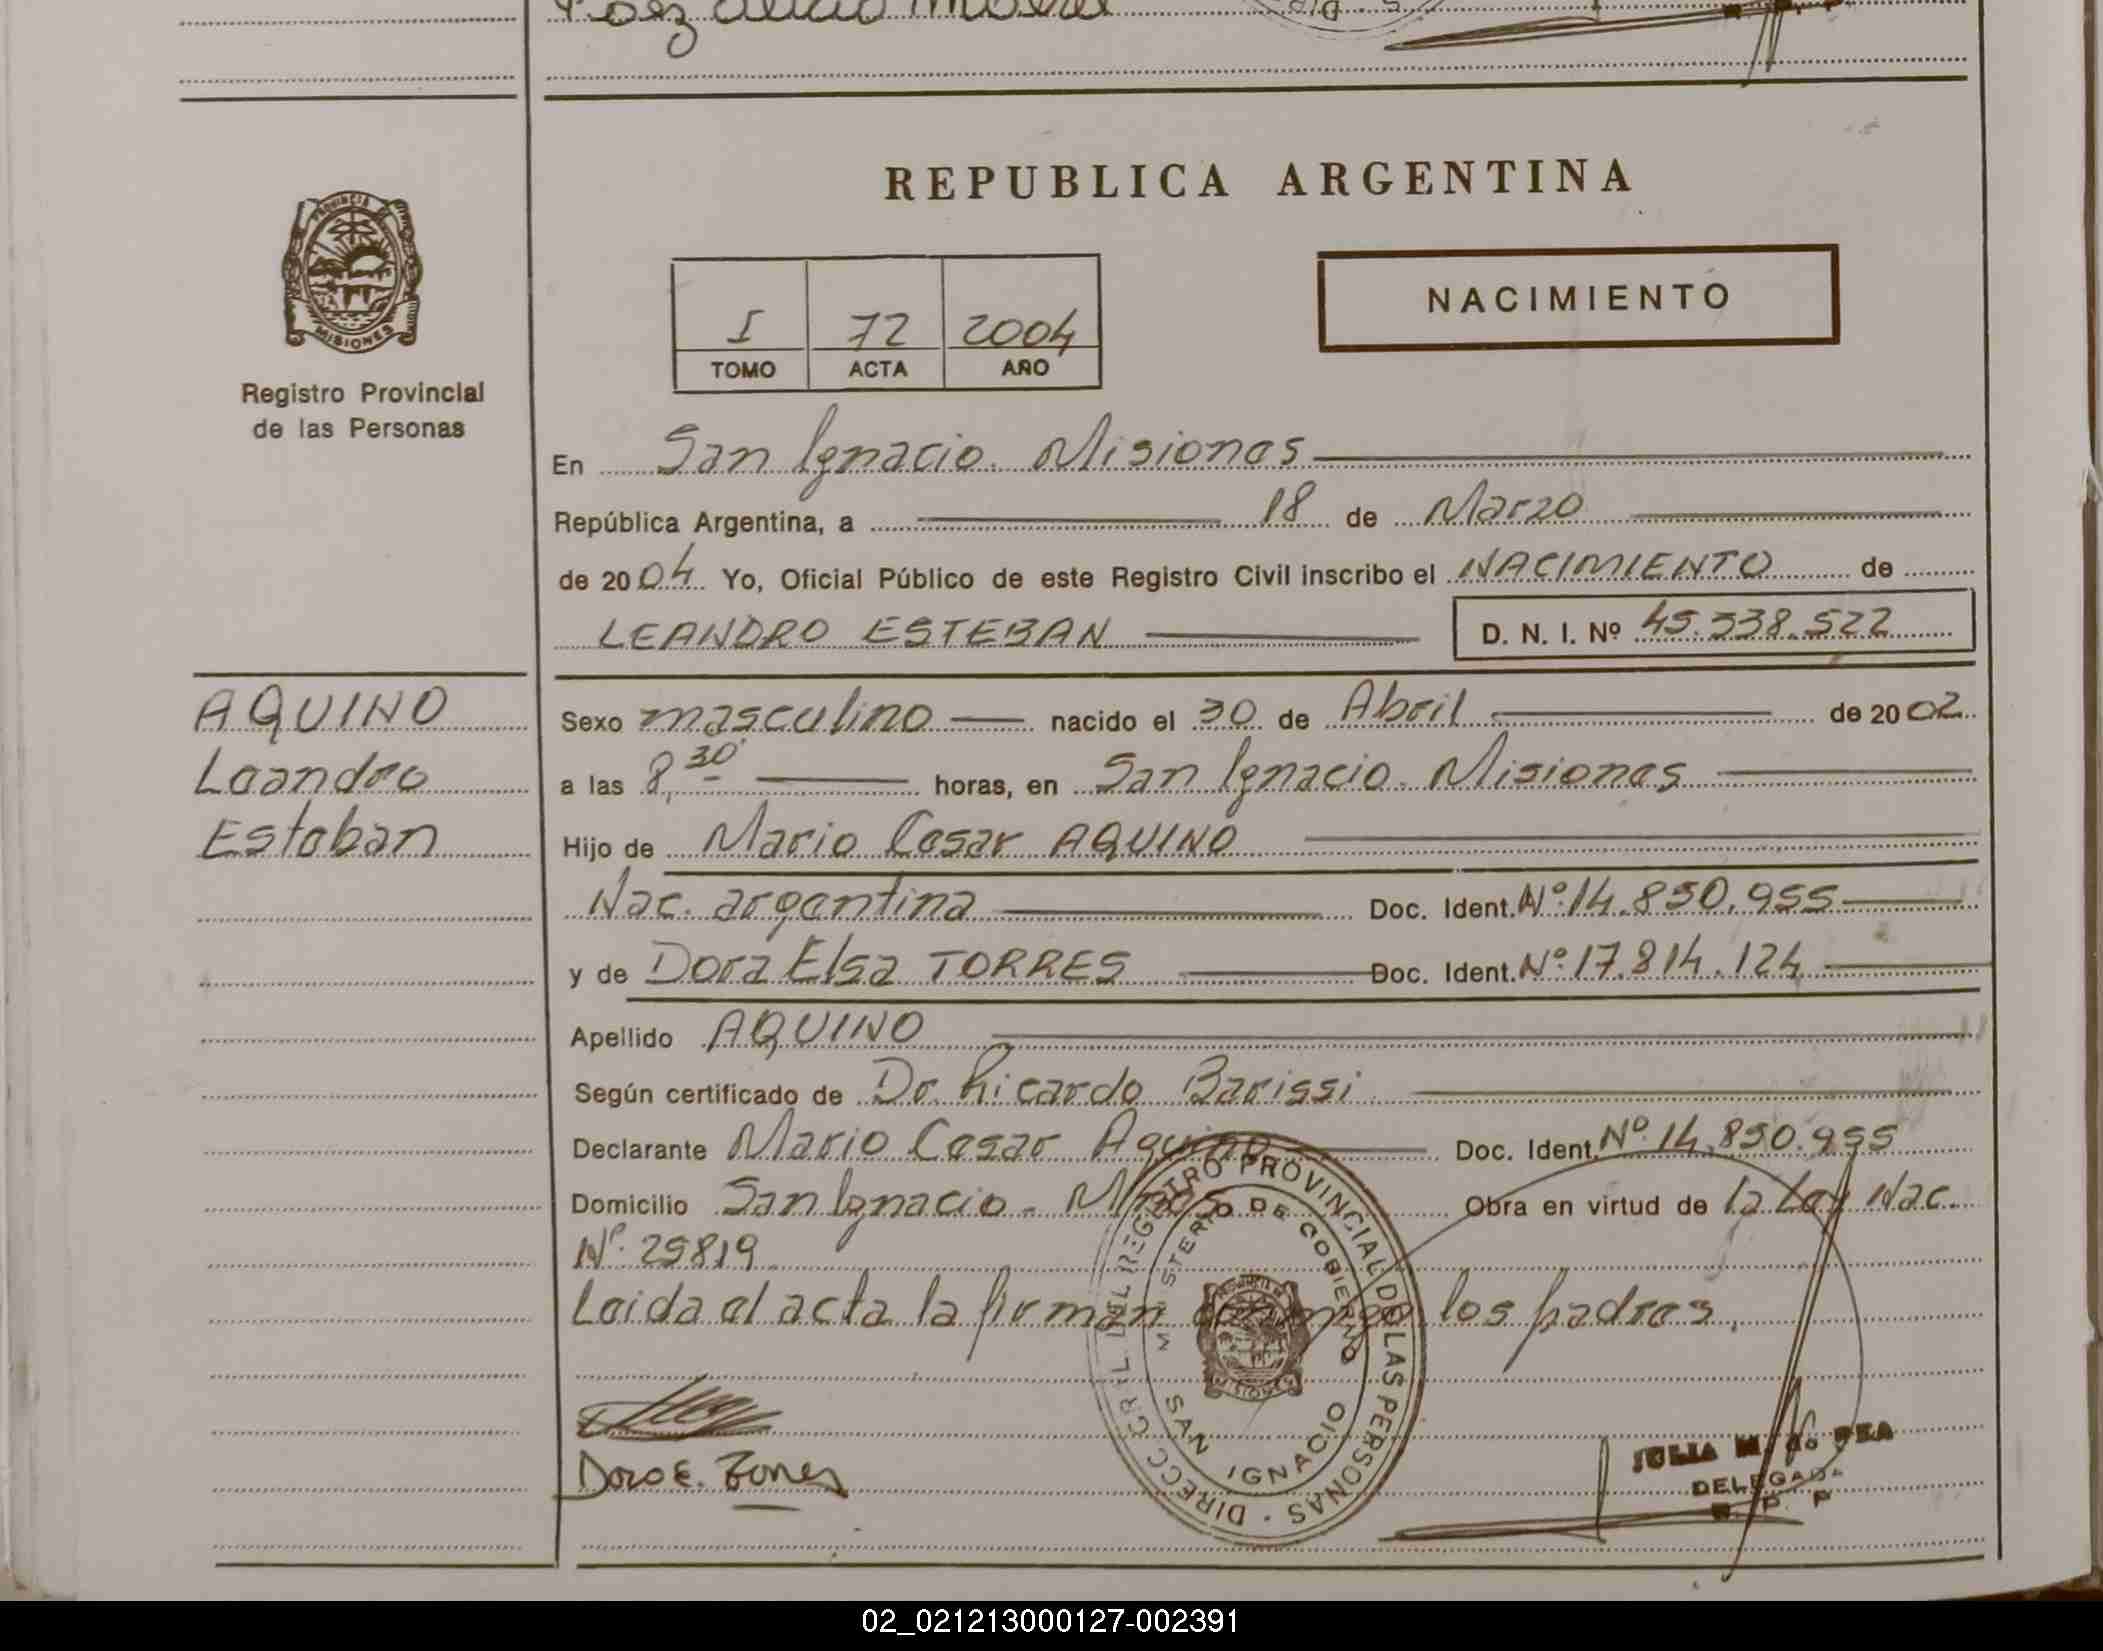 REPUBLICA ARGENTINA
PROVINCIA DE
MISIONES
Registro Provincial
de las Personas
I 72 2004
TOMO ACTA AÑO
NACIMIENTO
En San Ignacio. Misiones
República Argentina, a 18 de Marzo
de 2004 Yo, Oficial Público de este Registro Civil inscribo el NACIMIENTO de
LEANDRO ESTEBAN D. N. I. Nº 45.338.522
AQUINO
Leandro
Esteban
Sexo masculino nacido el 30 de Abril de 2002
a las 8,30 horas, en San Ignacio. Misiones
Hijo de Mario Cesar AQUINO
Nac. argentina Doc. Ident. Nº 14.850.955
y de Dora Elsa TORRES Doc. Ident. Nº 17.814.124
Apellido AQUINO
Según certificado de Dr. Ricardo Barissi
Declarante Mario Cesar Aquino Doc. Ident. Nº 14.850.955
Domicilio San Ignacio - Mnes Obra en virtud de la Ley Nac.
Nº 25819
Leida el acta la firman conmigo los padres.
DIRECC GRL DEL REGISTRO PROVINCIAL DE LAS PERSONAS
MINISTERIO DE GOBIERNO
MISIONES
SAN IGNACIO
Dora E. Torres
JULIA M. de REA
DELEGADA
R. P. P
02_021213000127-002391